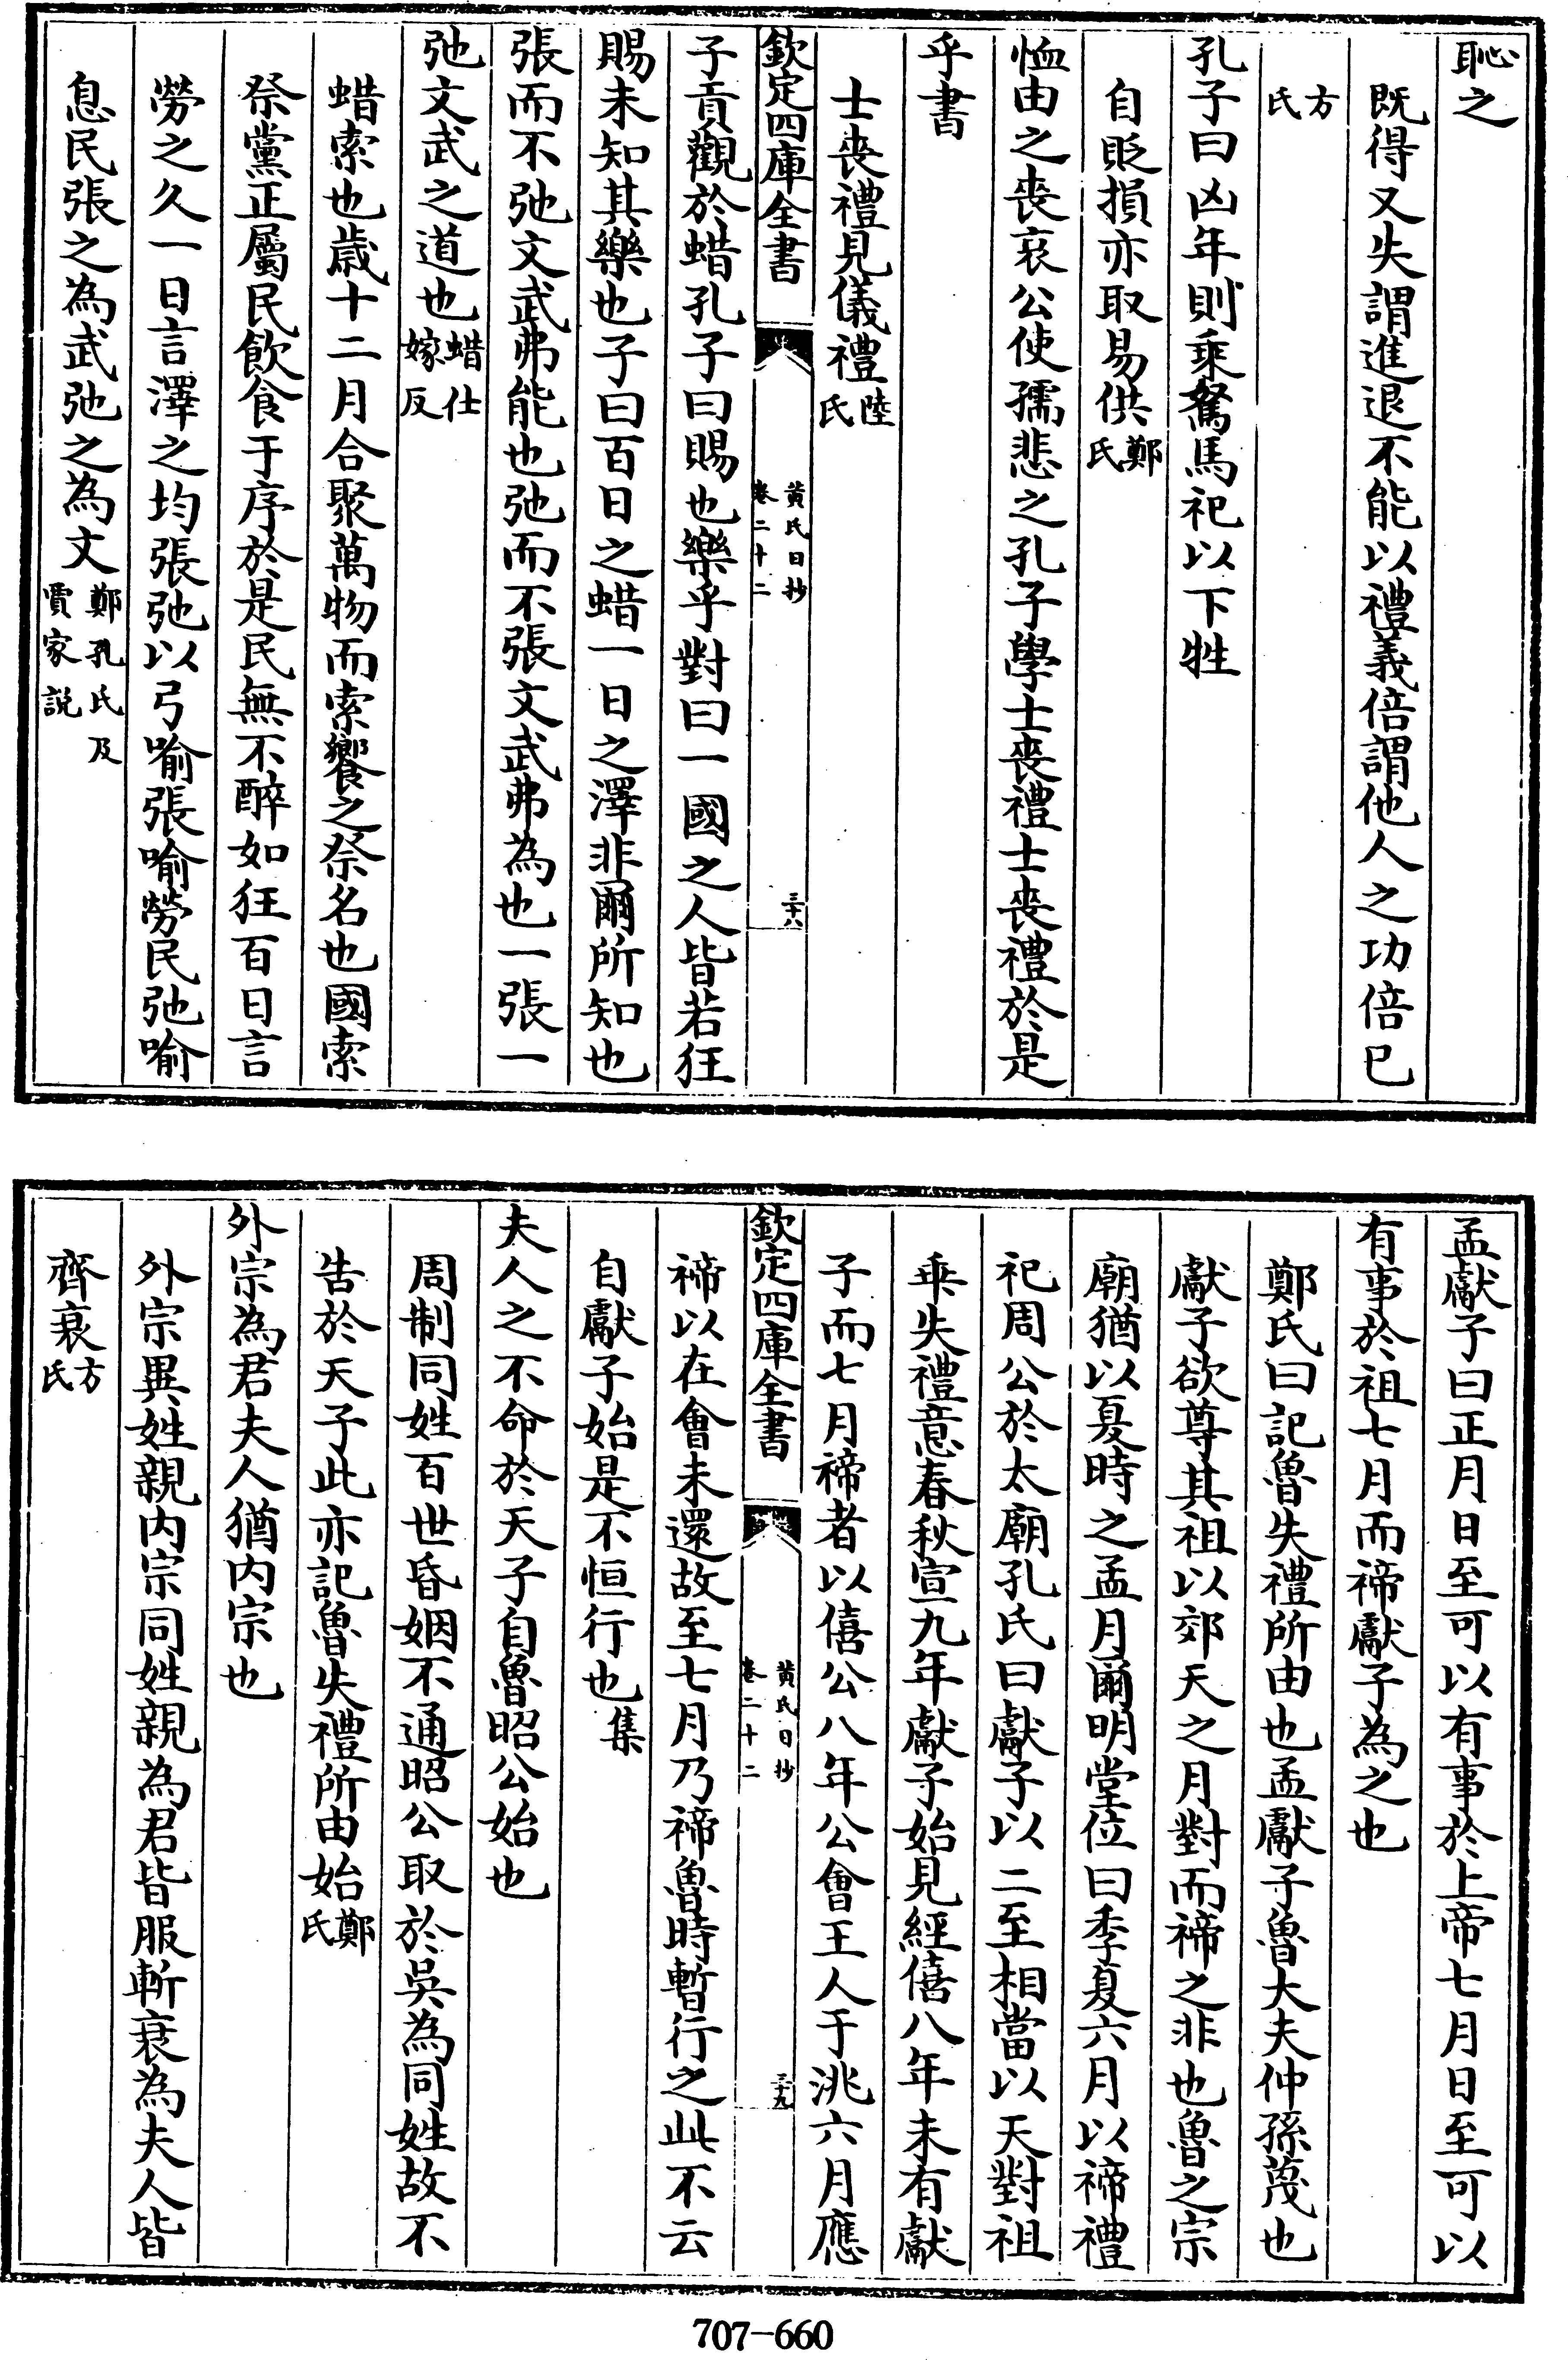 恥之
既得又失謂進退不能以禮義倍謂他人之功倍已
方氏
孔子曰凶年則乘駑馬祀以下牲
自貶損亦取易供鄭氏
恤由之喪哀公使孺悲之孔子學士喪禮士喪禮於是
乎書
士喪禮見儀禮陸氏
欽定四庫全書
黄氏日抄
卷二十二
三十八
子貢觀於蜡孔子曰賜也樂乎對曰一國之人皆若狂
賜未知其樂也子曰百日之蜡一日之澤非爾所知也
張而不弛文武弗能也弛而不張文武弗為也一張一
弛文武之道也蜡仕嫁反
蜡索也歲十二月合聚萬物而索饗之祭名也國索
祭黨正屬民飲食于序於是民無不醉如狂百日言
勞之久一日言澤之均張弛以弓喻張喻勞民弛喻
息民張之為武弛之為文鄭孔氏及賈家説
孟獻子曰正月日至可以有事於上帝七月日至可以
有事於祖七月而禘獻子為之也
鄭氏曰記魯失禮所由也孟獻子魯大夫仲孫蔑也
獻子欲尊其祖以郊天之月對而禘之非也魯之宗
廟猶以夏時之孟月爾明堂位曰季夏六月以禘禮
祀周公於太廟孔氏曰獻子以二至相當以天對祖
乖失禮意春秋宣九年獻子始見經僖八年未有獻
子而七月禘者以僖公八年公會王人于洮六月應
欽定四庫全書
黄氏日抄
卷二十二
三十九
禘以在會未還故至七月乃禘魯時暫行之此不云
自獻子始是不恒行也集
夫人之不命於天子自魯昭公始也
周制同姓百世昏姻不通昭公取於吳為同姓故不
告於天子此亦記魯失禮所由始鄭氏
外宗為君夫人猶内宗也
外宗異姓親内宗同姓親為君皆服斬衰為夫人皆
齊衰方氏
707-660